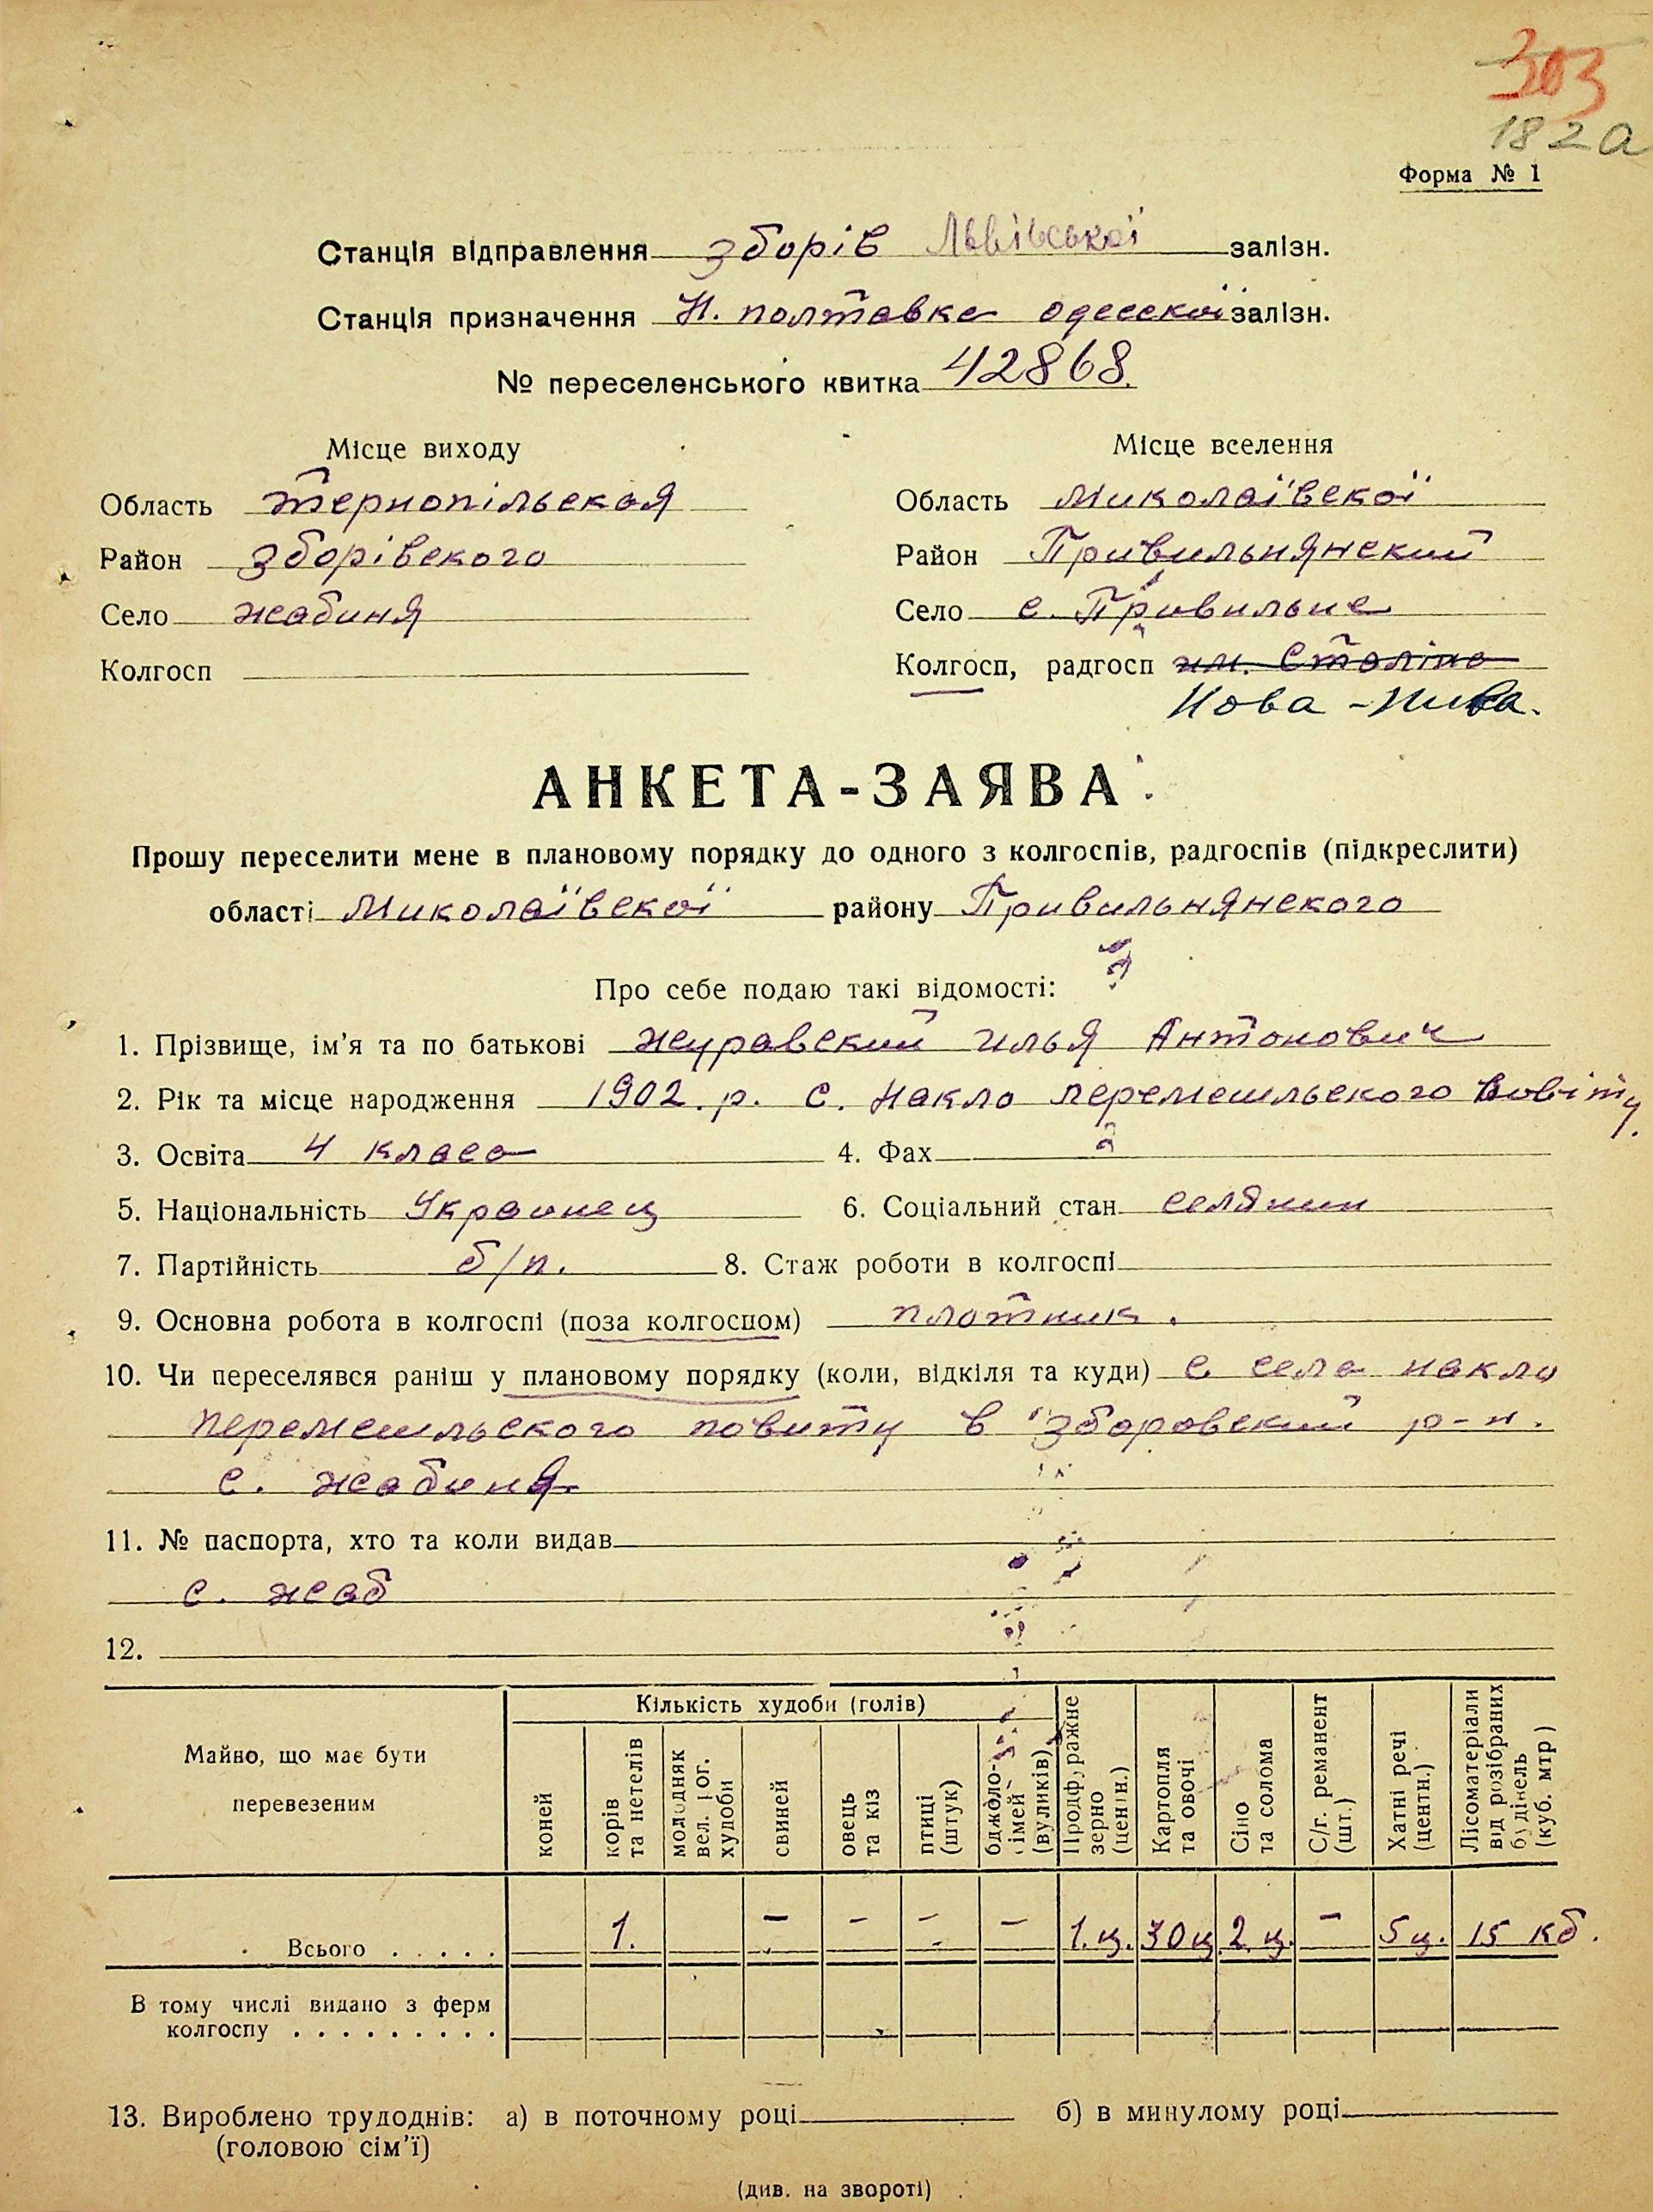 303
182а
Форма № 1
Станція відправлення Зборів Львівської залізн.
Станція призначення Н. полтавка одесскої залізн.
№ переселенського квитка 42868.
Місце виходу
Область тернопільская
Район Зборівского
Село жабиня
Колгосп
Місце вселення
Область Миколаївскої
Район Привильнянский
Село с. Привильне
Колгосп, радгосп им. Сталіна
Нова-Нива.
АНКЕТА-ЗАЯВА
Прошу переселити мене в плановому порядку до одного з колгоспів, радгоспів (підкреслити)
області Миколаївскої району Привильнянского
Про себе подаю такі відомості:
1. Прізвище, ім'я та по батькові журавский илья Антонович
2. Рік та місце народження 1902. р. с. Накло перемешльского повіту.
3. Освіта 4 класа 4. Фах
5. Національність Украинец 6. Соціальний стан селянин
7. Партійність б/п. 8. Стаж роботи в колгоспі
9. Основна робота в колгоспі (поза колгоспом) плотник.
10. Чи переселявся раніш у плановому порядку (коли, відкіля та куди) с села накло
перемешльского повиту в зборовский р-н.
с. жабиня
11. № паспорта, хто та коли видав
с. жаб
12.
Майно, що має бути перевезеним
Кількість худоби (голів)
коней
корів та нетелів
молодняк вел. рог. худоби
свиней
овець та кіз
птиці (штук)
бджоло-сімей (вуликів)
Продфуражне зерно (центн.)
Картопля та овочі
Сіно та солома
С/г. реманент (шт.)
Хатні речі (центн.)
Лісоматеріали від розібраних будівель (куб. мтр)
Всього . . . . . 1. – – – – 1. ц. 30 ц 2 ц. – 5 ц. 15 кб.
В тому числі видано з ферм
колгоспу . . . . . . . . .
13. Вироблено трудоднів: а) в поточному році б) в минулому році
(головою сім'ї)
(див. на звороті)